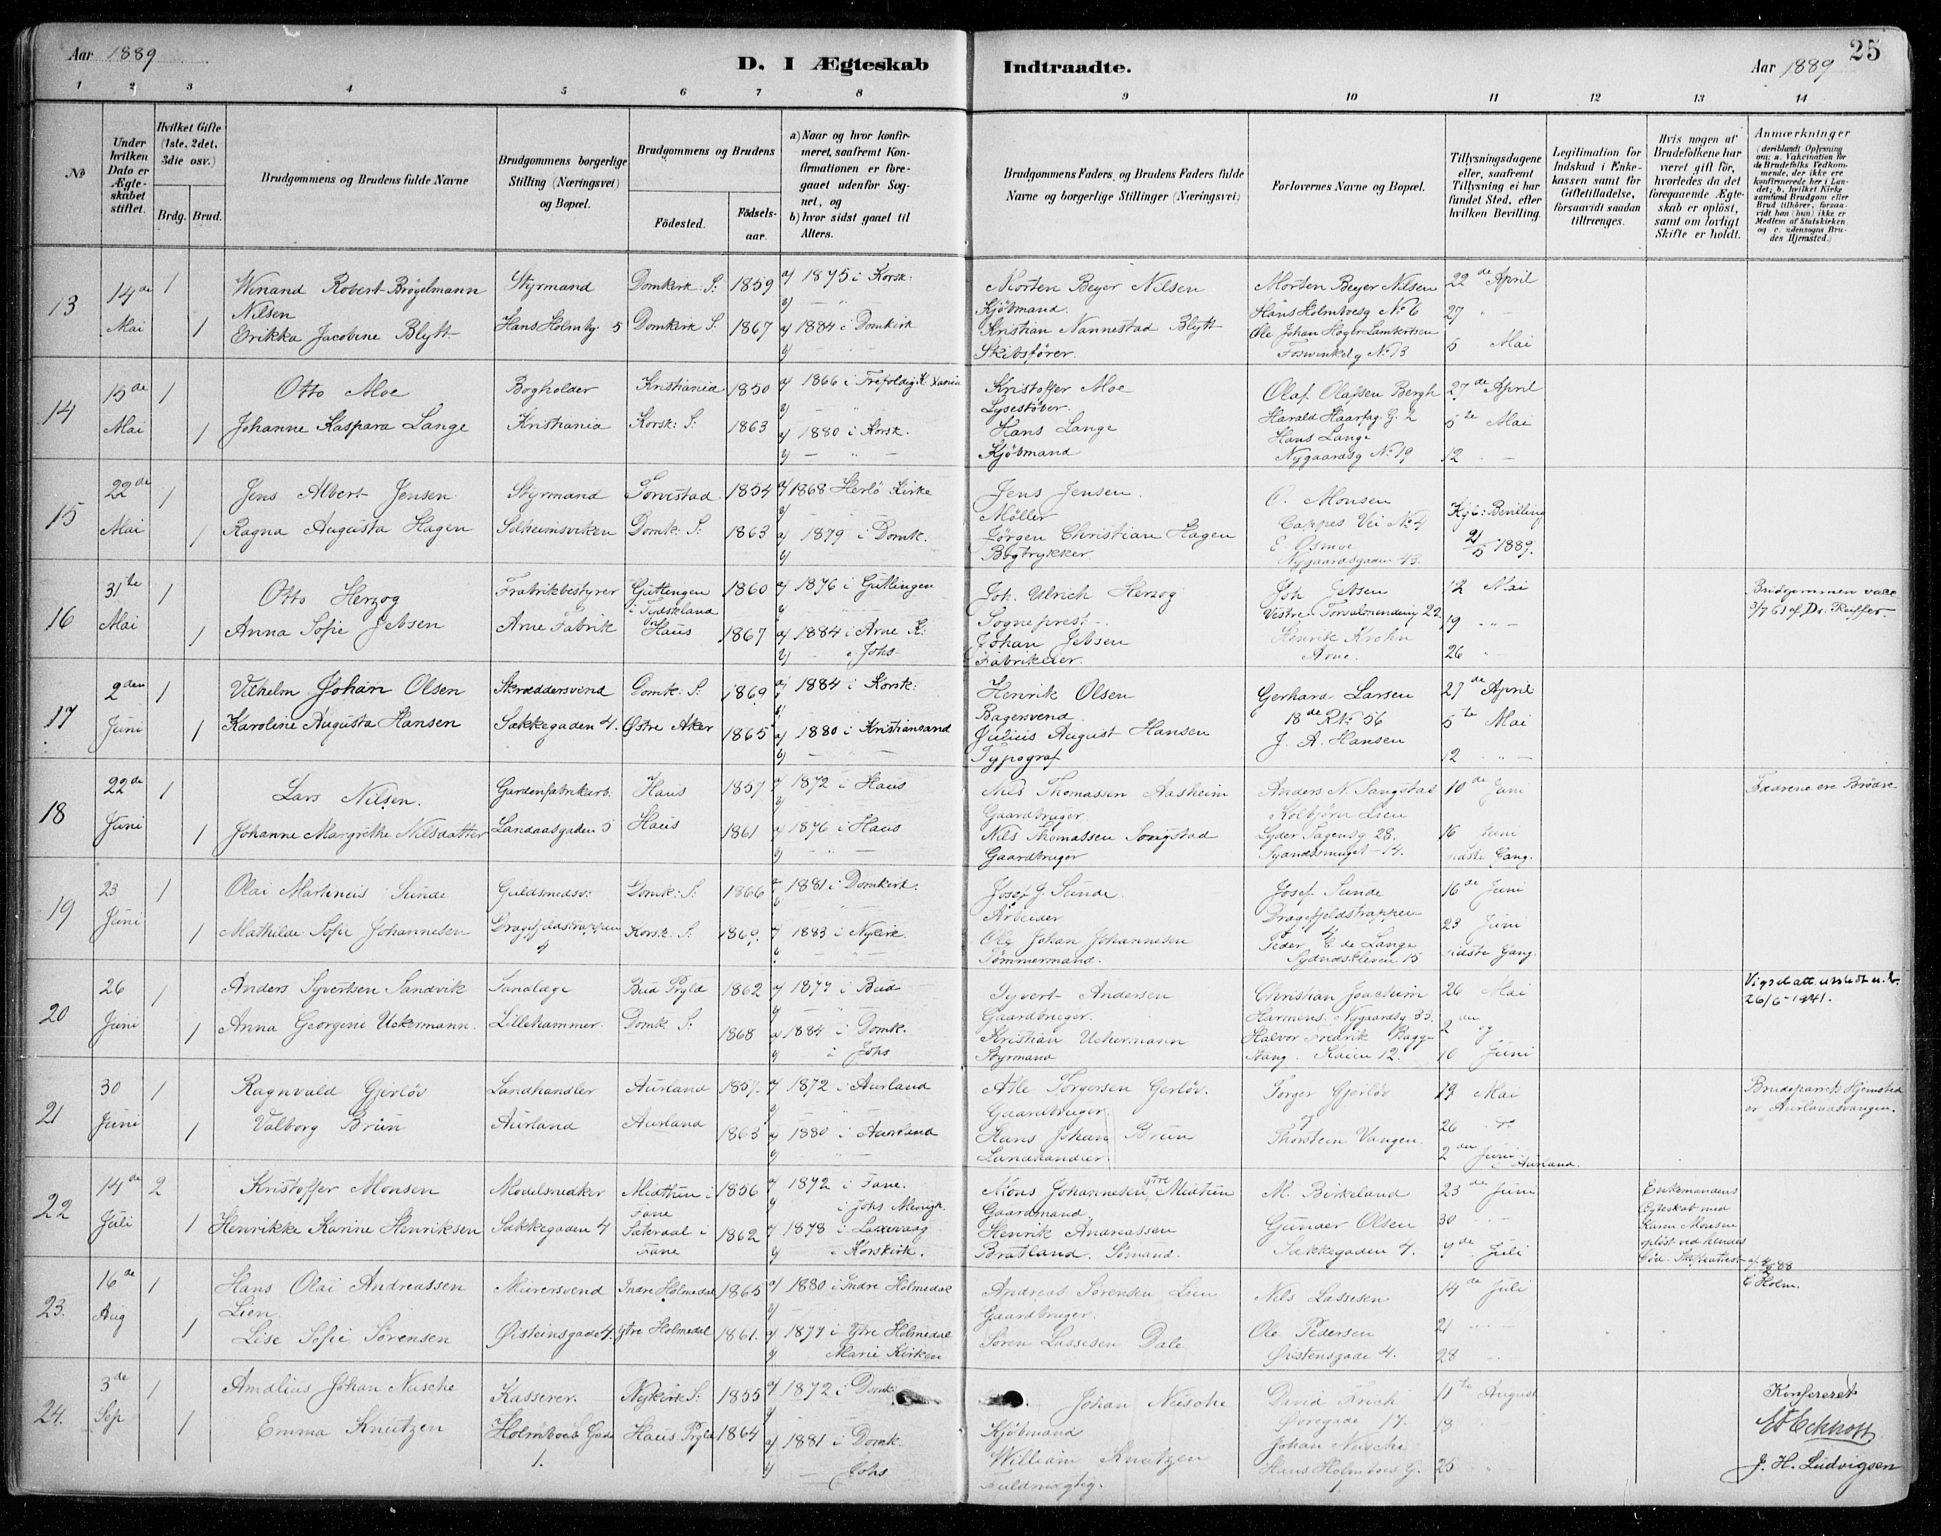 Aar 1889
D. I Ægteskab
Indtraadte.
Aar 1889
25
1 2 3 4 5 6 7 8 9 10 11 12 13 14
No
Under hvilken Dato er Ægteskabet stiftet.
Hvilket Gifte (1ste, 2det, 3die osv.)
Brdg. Brud.
Brudgommens og Brudens fulde Navne
Brudgommens borgerlige Stilling (Næringsvei) og Bopæl.
Brudgommens og Brudens
Födested.
Födselsaar.
a) Naar og hvor konfirmeret, saafremt Konfirmationen er foregaaet udenfor Sognet, og
b) hvor sidst gaaet til Alters.
Brudgommens Faders og Brudens Faders fulde Navne og borgerlige Stillinger (Næringsvei)
Forlovernes Navne og Bopæl.
Tillysningsdagene eller, saafremt Tillysning ei har fundet Sted, efter hvilken Bevilling.
Legitimation for Indskud i Enkekassen samt for Giftetilladelse, forsaavidt saadan tiltrænges.
Hvis nogen af Brudefolkene har været gift før, hvorledes da det foregaaende Ægteskab er oplöst, samt om lovligt Skifte er holdt.
Anmærkninger
13 14de Mai 1 Winand Robert Brögelmann Nilsen Styrmand Domkirk S: 1859 a) 1875 i Korsk: Morten Beyer Nilsen Kjøbmand Morten Beyer Nilsen Hans Holmboesg No 6 22de April
1 Erikka Jacobine Blytt Hans Holmbg 5 Domkirk S. 1867 a) 1884 i Domkirk Kristian Nannestad Blytt Skibsfører. Ole Johan Lambertsen Fosvinkelg No 13 27 5 Mai
14 15de Mai 1 Otto Moe Bogholder Kristiania 1850 a) 1866 i Trefoldig K. Xania Kristoffer Moe Lysestøber. Olaf Olafsen Bergh Harald Haarfag. G. 2 27de April
1 Johanne Kaspara Lange Kristiania Korsk: S: 1863 a) 1880 i Korsk. Hans Lange Kjøbmand Hans Lange Nygaardsg No 19 5te Mai 12
15 22de Mai 1 Jens Albert Jensen Styrmand Torvestad 1854 a) 1868 Herlö Kirke Jens Jensen. Møller O. Monsen Cappes Vei No 4 Kgl: Bevilling
1 Ragna Augusta Hagen Solheimsviken Domk: S: 1863 a) 1879 i Domk. Jørgen Christian Hagen Bogtrykker E Osmoe Nygaardsgaden 43. 21/5 1889.
16 31te Mai 1 Otto Herzog Fabrikbestyrer Güttingen i Tydskland 1860 a) 1876 i Güttingen Joh. Ulrich Herzog Sogneprest Joh Jebsen Vestre Torvalmending 22 12 Mai Brudgommen vacc 3/7 61 af Dr. Ruffer
1 Anna Sofie Jebsen Arne Fabrik Haus 1867 a) 1884 i Arne K: b) Johs Johan Jebsen Fabrikeier. Henrik Krohn Arne. 19 26
17 2den Juni 1 Vilhelm Johan Olsen Skræddersvend Domk: S: 1869 a) 1884 i Korsk: Henrik Olsen Bagersvend Gerhard Larsen 18de R. No 56 27de April
1 Karoline Augusta Hansen Sækkegaden 4. Østre Aker 1865 a) 1880 i Kristiansand Julius August Hansen Typograf J. A. Hansen 5te Mai 12
18 22de Juni 1 Lars Nilsen. Gardenfabrikarb. Haus 1857 a) 1872 i Haus Nils Thomassen Aasheim Gaardbruger Anders N. Songstad Kolbjørn Lien 10de Juni Fædrene ere Brødre
1 Johanne Margrethe Nilsdatter Landaasgaden 5 Haus 1861 a) 1876 i Haus Nils Thomassen Songstad Gaardbruger Lyder Sagensg 28. 14. 16 Juni sidste Gang.
19 23 Juni 1 Olai Martineus Sunde Guldsmedsv: Domk: S: 1866 a) 1881 i Domkirk. Josef J. Sunde Arbeider Josef Sunde Dragefjeldstrappen 4 16de Juni
1 Mathilde Sofie Johannesen Dragefjeldstrappen 4 Korsk: S. 1869. a) 1883 i Nykirk. Ole Johan Johannesen Tømmermand. Peder C. de Lange Sydneskleven 15 23 Juni sidste Gang.
20 26 Juni 1 Anders Syvertsen Sandvik Tandlæge Bud Prgld 1862 a) 1877 i Bud Syvert Andersen Gaardbruger. Christian Joachim Harmens. Nygaardsg 33. 26 Mai 26/6-1941.
1 Anna Georgine Uckermann. Lillehammer. Domk. S. 1868 a) 1884 i Domk. b) i Johs Kristian Uckermann Styrmand Halvor Fredrik Bagge Stang. Kaien 12. 2den og 10 Juni
21 30 Juni 1 Ragnvald Gjerløv Landhandler Aurland 1857. a) 1872 i Aurland Atle Torgersen Gerløv. Gaardbruger Torger Gjerløv og 19 Mai Brudeparrets Hjemsted er Aurlandsvangen.
1 Valborg Brun Aurland Aurland 1863 a) 1880 i Aurland Hans Johan Brun Landhandler. Thorstein Vangen. 26 2den Juni i Aurland.
22 14de Juli 2 Kristoffer Monsen Modelsnedker Midthun i Fane 1856 a) 1872 i Fane. i Johs Menigh. Mons Johannesen Midtun Gaardmand. M. Birkeland 23de Juni Enkemandens Ægteskab med Karen Monsen opløst ved hendes Død. Skifteattest af 4/2 88 C Holm.
1 Henrikke Karine Henriksen Sækkegaden 4 Sæterdal i Fane 1862 a) 1878 i Laxevaag i Korskirk. Henrik Andreassen Bratland. Sømand. Gunder Olsen Sækkegaden 4. 30 7de Juli
23. 16de Aug 1 Hans Olai Andreassen Lien Murersvend Indre Holmedal 1865 a) 1880 i Indre Holmedal Andreas Sørensen Lien Gaardbruger. Nils Lassesen 14de Juli
1 Lise Sofie Sørensen Øisteinsgade 4 Ytre Holmedal 1861. a) 1877 i Ytre Holmedal b) Marie Kirken Søren Lassesen Dale Ole Pedersen Øistensgade 4. 21 28
24. 3de Sep 1 Amdlius Johan Nitsche Kasserer. Nykirk S: 1855 a) 1872 i Domk: Johan Nitsche Kjøbmand David Øvregade 17. 11te August Konfereret
1 Emma Knutzen Holmboes Gade 1. Haus Prgld 1864 a) 1881 i Domk. b) Johs William Knutzen Fuldmægtig. Johan Nitsche Hans Holmboes G. 1 18 25 Eckhoff
J. H. Ludvigsen